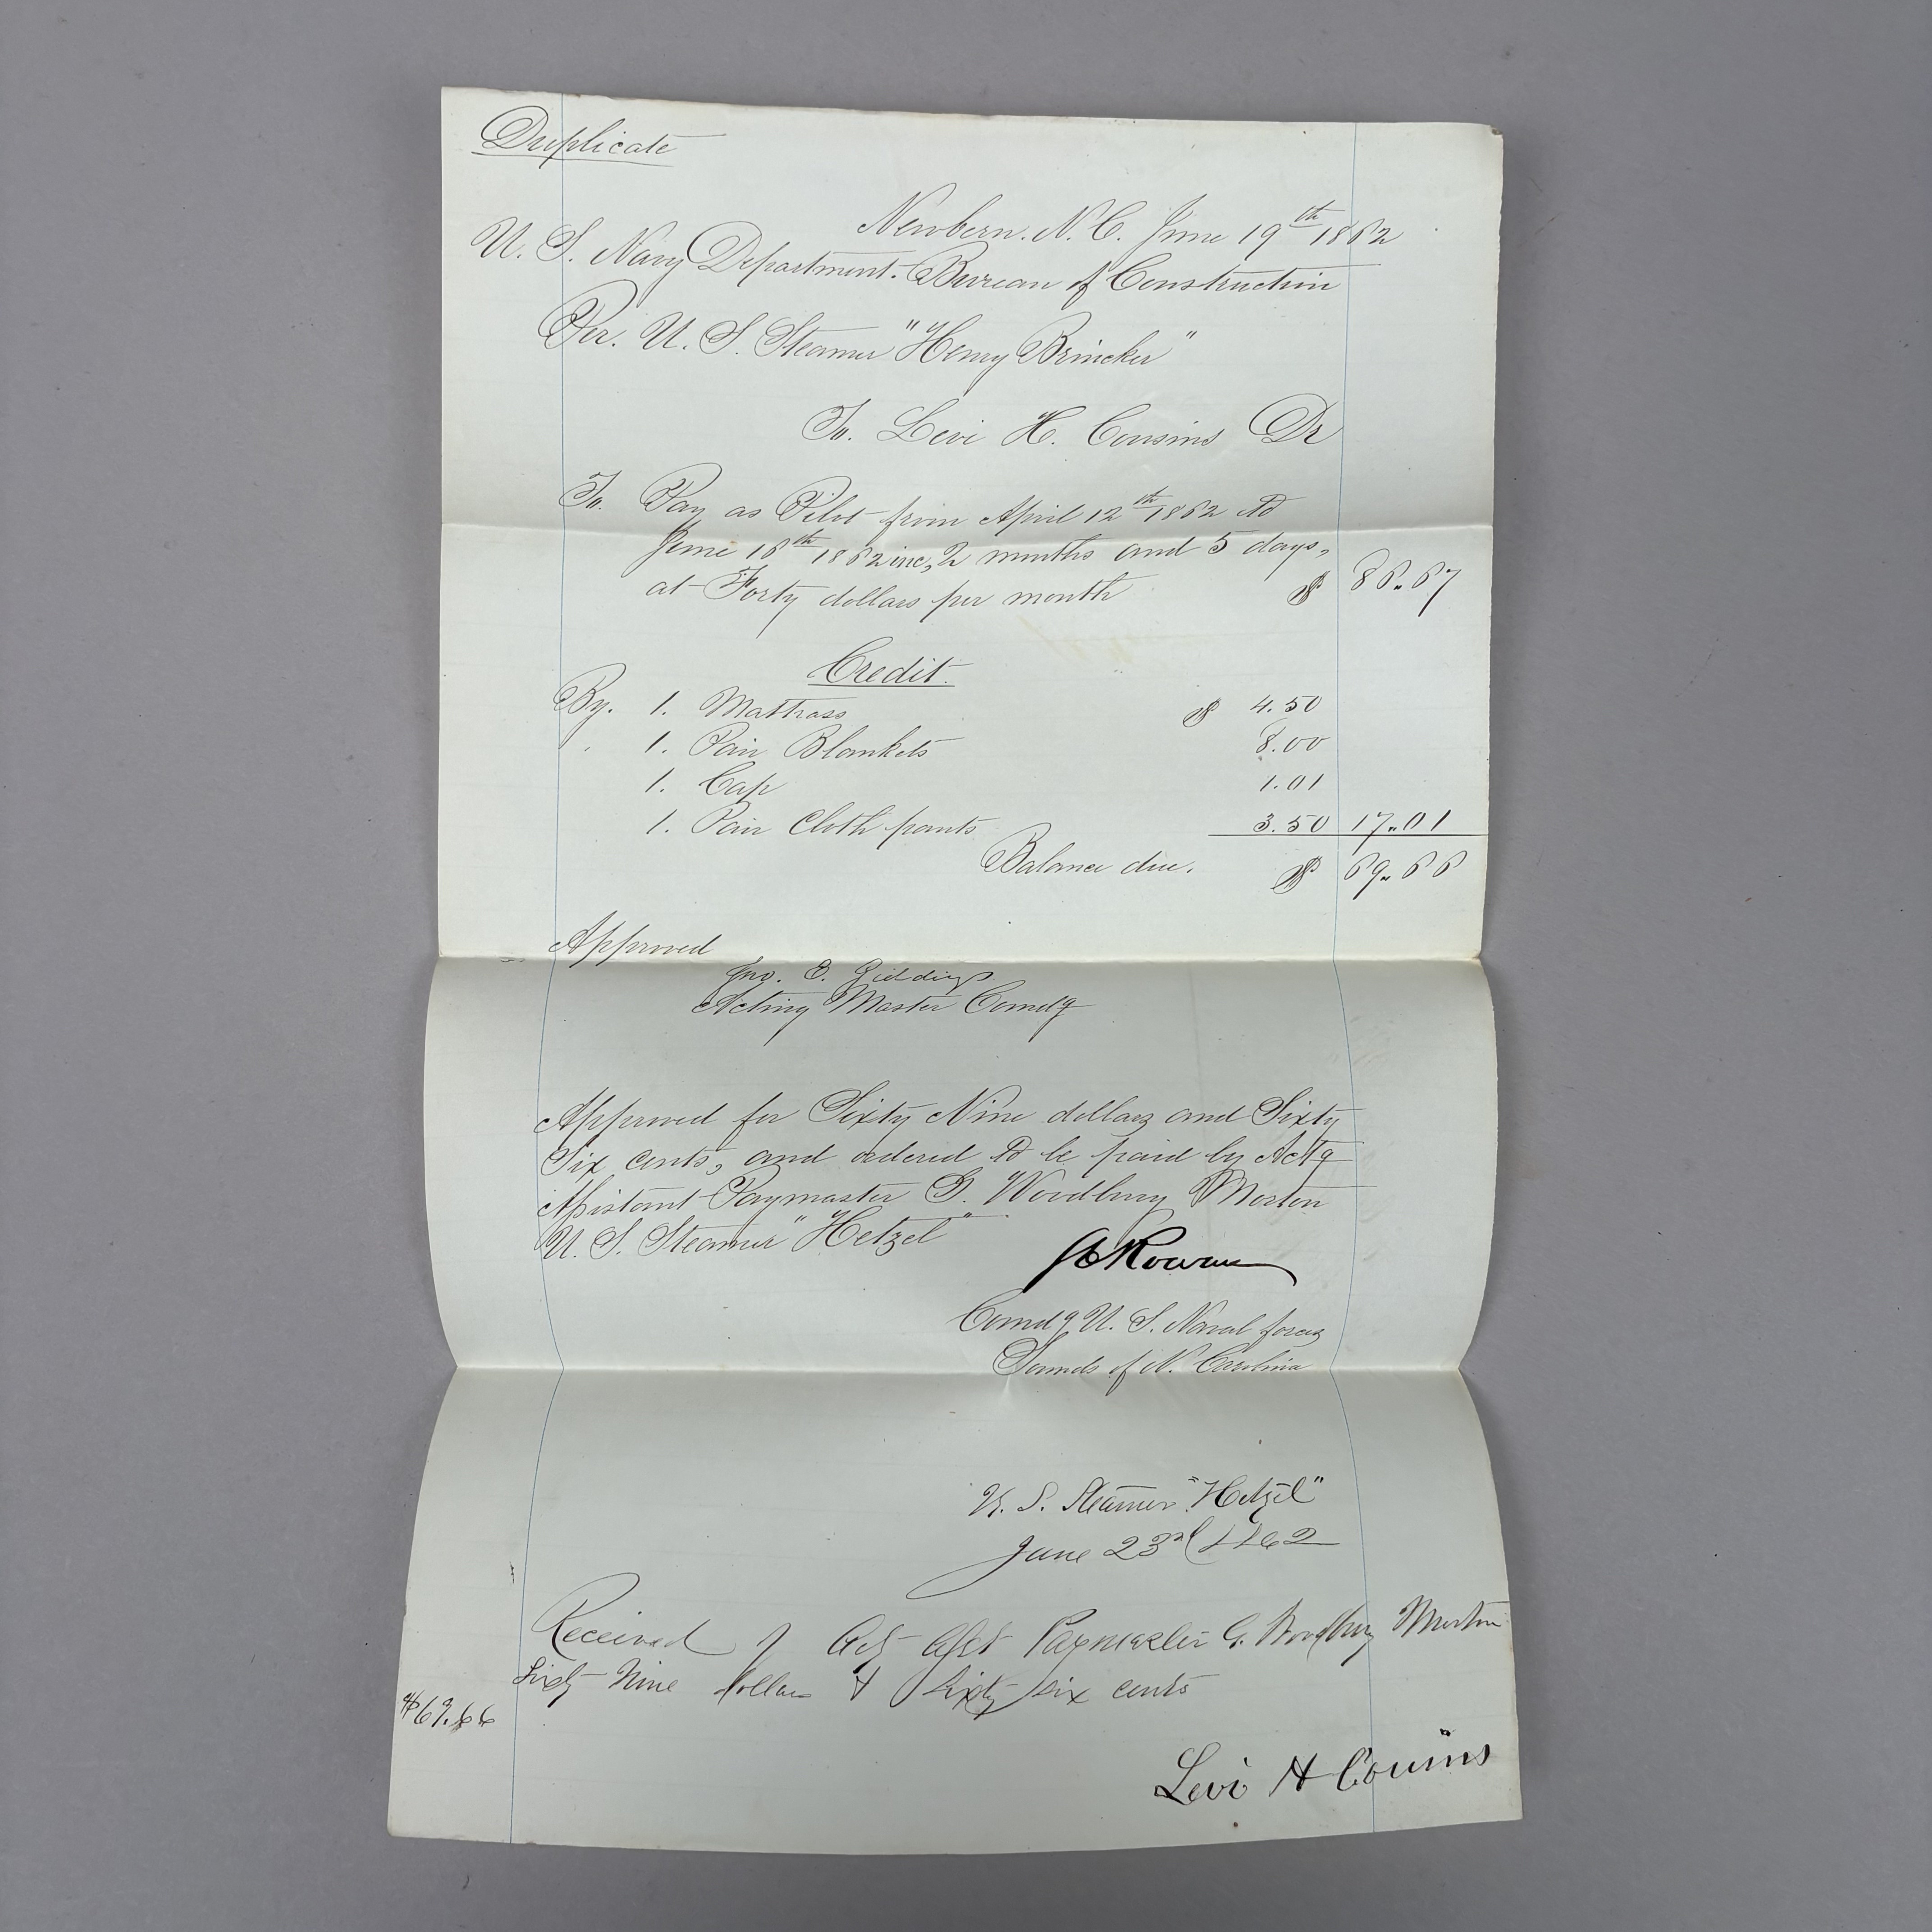 Duplicate
Newbern. N.C. June 19th 1862
U. S. Navy Department. Bureau of Construction
Per. U. S. Steamer "Henry Brincker"
To. Levi H. Cousins Dr
To. Pay as Pilot from April 12th 1862 to
June 16th 1862 inc, 2 months and 5 days,
at Forty dollars per month $ 86.67
Credit.
By. 1. Mattrass $ 4.50
1. Pair Blankets 8.00
1. Cap 1.01
1. Pair Cloth pants 3.50 17.01
Balance due. $ 69.66
Approved
Jno. E. Giddings
Acting Master Comdg
Approved for Sixty Nine dollars and Sixty
Six cents, and ordered to be paid by Actg
Assistant Paymaster G. Woodbury Morton
U. S. Steamer "Hetzel"
Rowan
Comdg U. S. Naval forces
Sounds of N. Carolina
U. S. Steamer "Hetzel"
June 23d 1862
Received of Act Asst Paymaster G. Woodbury Morton
Sixty Nine dollars & Sixty six cents
$69.66
Levi H Cousins